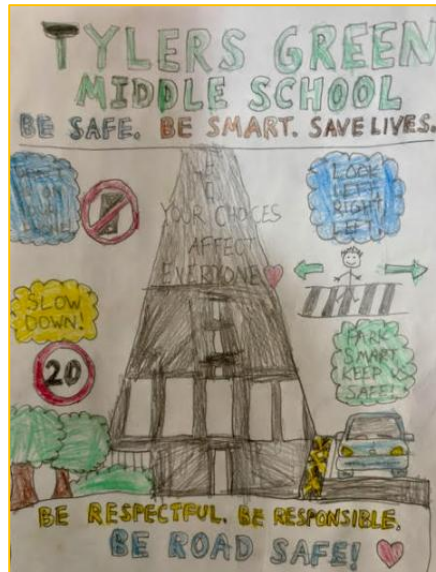 TYLERS GREEN
MIDDLE SCHOOL
BE SAFE. BE SMART. SAVE LIVES.
DON'T
ON
YOUR
PHONE!
LOOK
LEFT,
RIGHT,
LEFT!
YOUR CHOICES
AFFECT
EVERYONE
SLOW
DOWN!
20
PARK
SMART
KEEP US
SAFE!
BE RESPECTFUL. BE RESPONSIBLE.
BE ROAD SAFE!